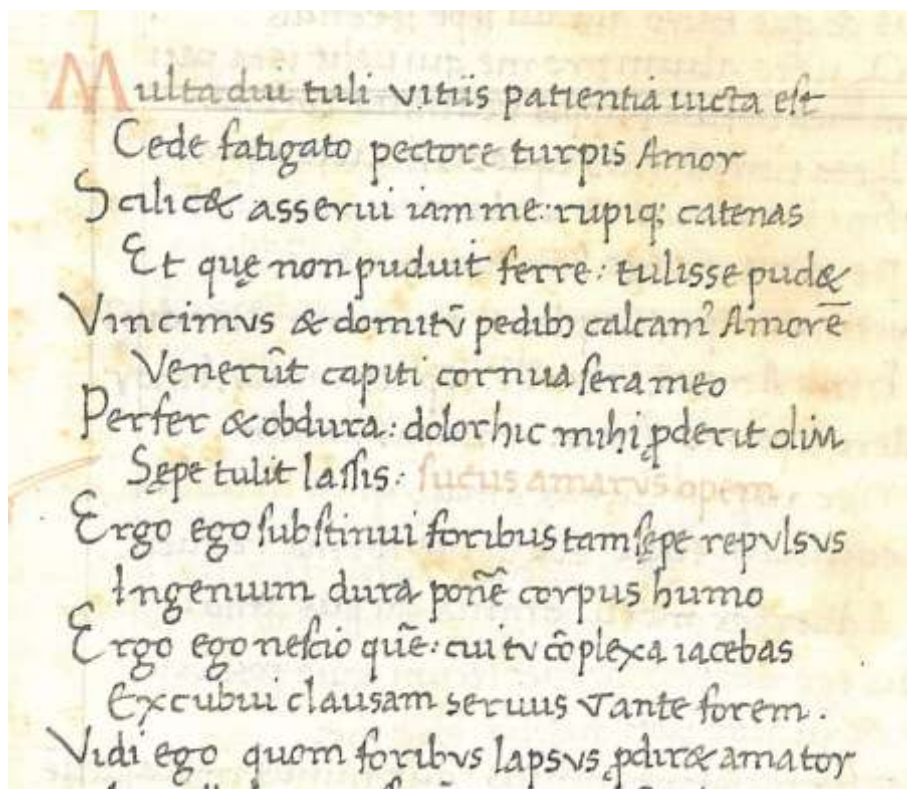 Multa diu tuli vitiis patientia uicta est
Cede fatigato pectore turpis Amor
Scilic& asserui iam me: rupiq; catenas
Et quę non puduit ferre: tulisse pud&
Vincimus & domitū pedibꝫ calcamꝰ Amorē
Venerūt capiti cornua sera meo
Perfer & obdura: dolor hic mihi ꝓderit olim
Sępe tulit lassis: sucus amarus opem.
Ergo ego substinui foribus tam sępe repulsus
Ingenuum dura ponē corpus humo
Ergo ego nescio quē: cui tu cōplexa iacebas
Excubui clausam seruus vt ante forem.
Vidi ego quom foribus lapsus ꝓdir& amator